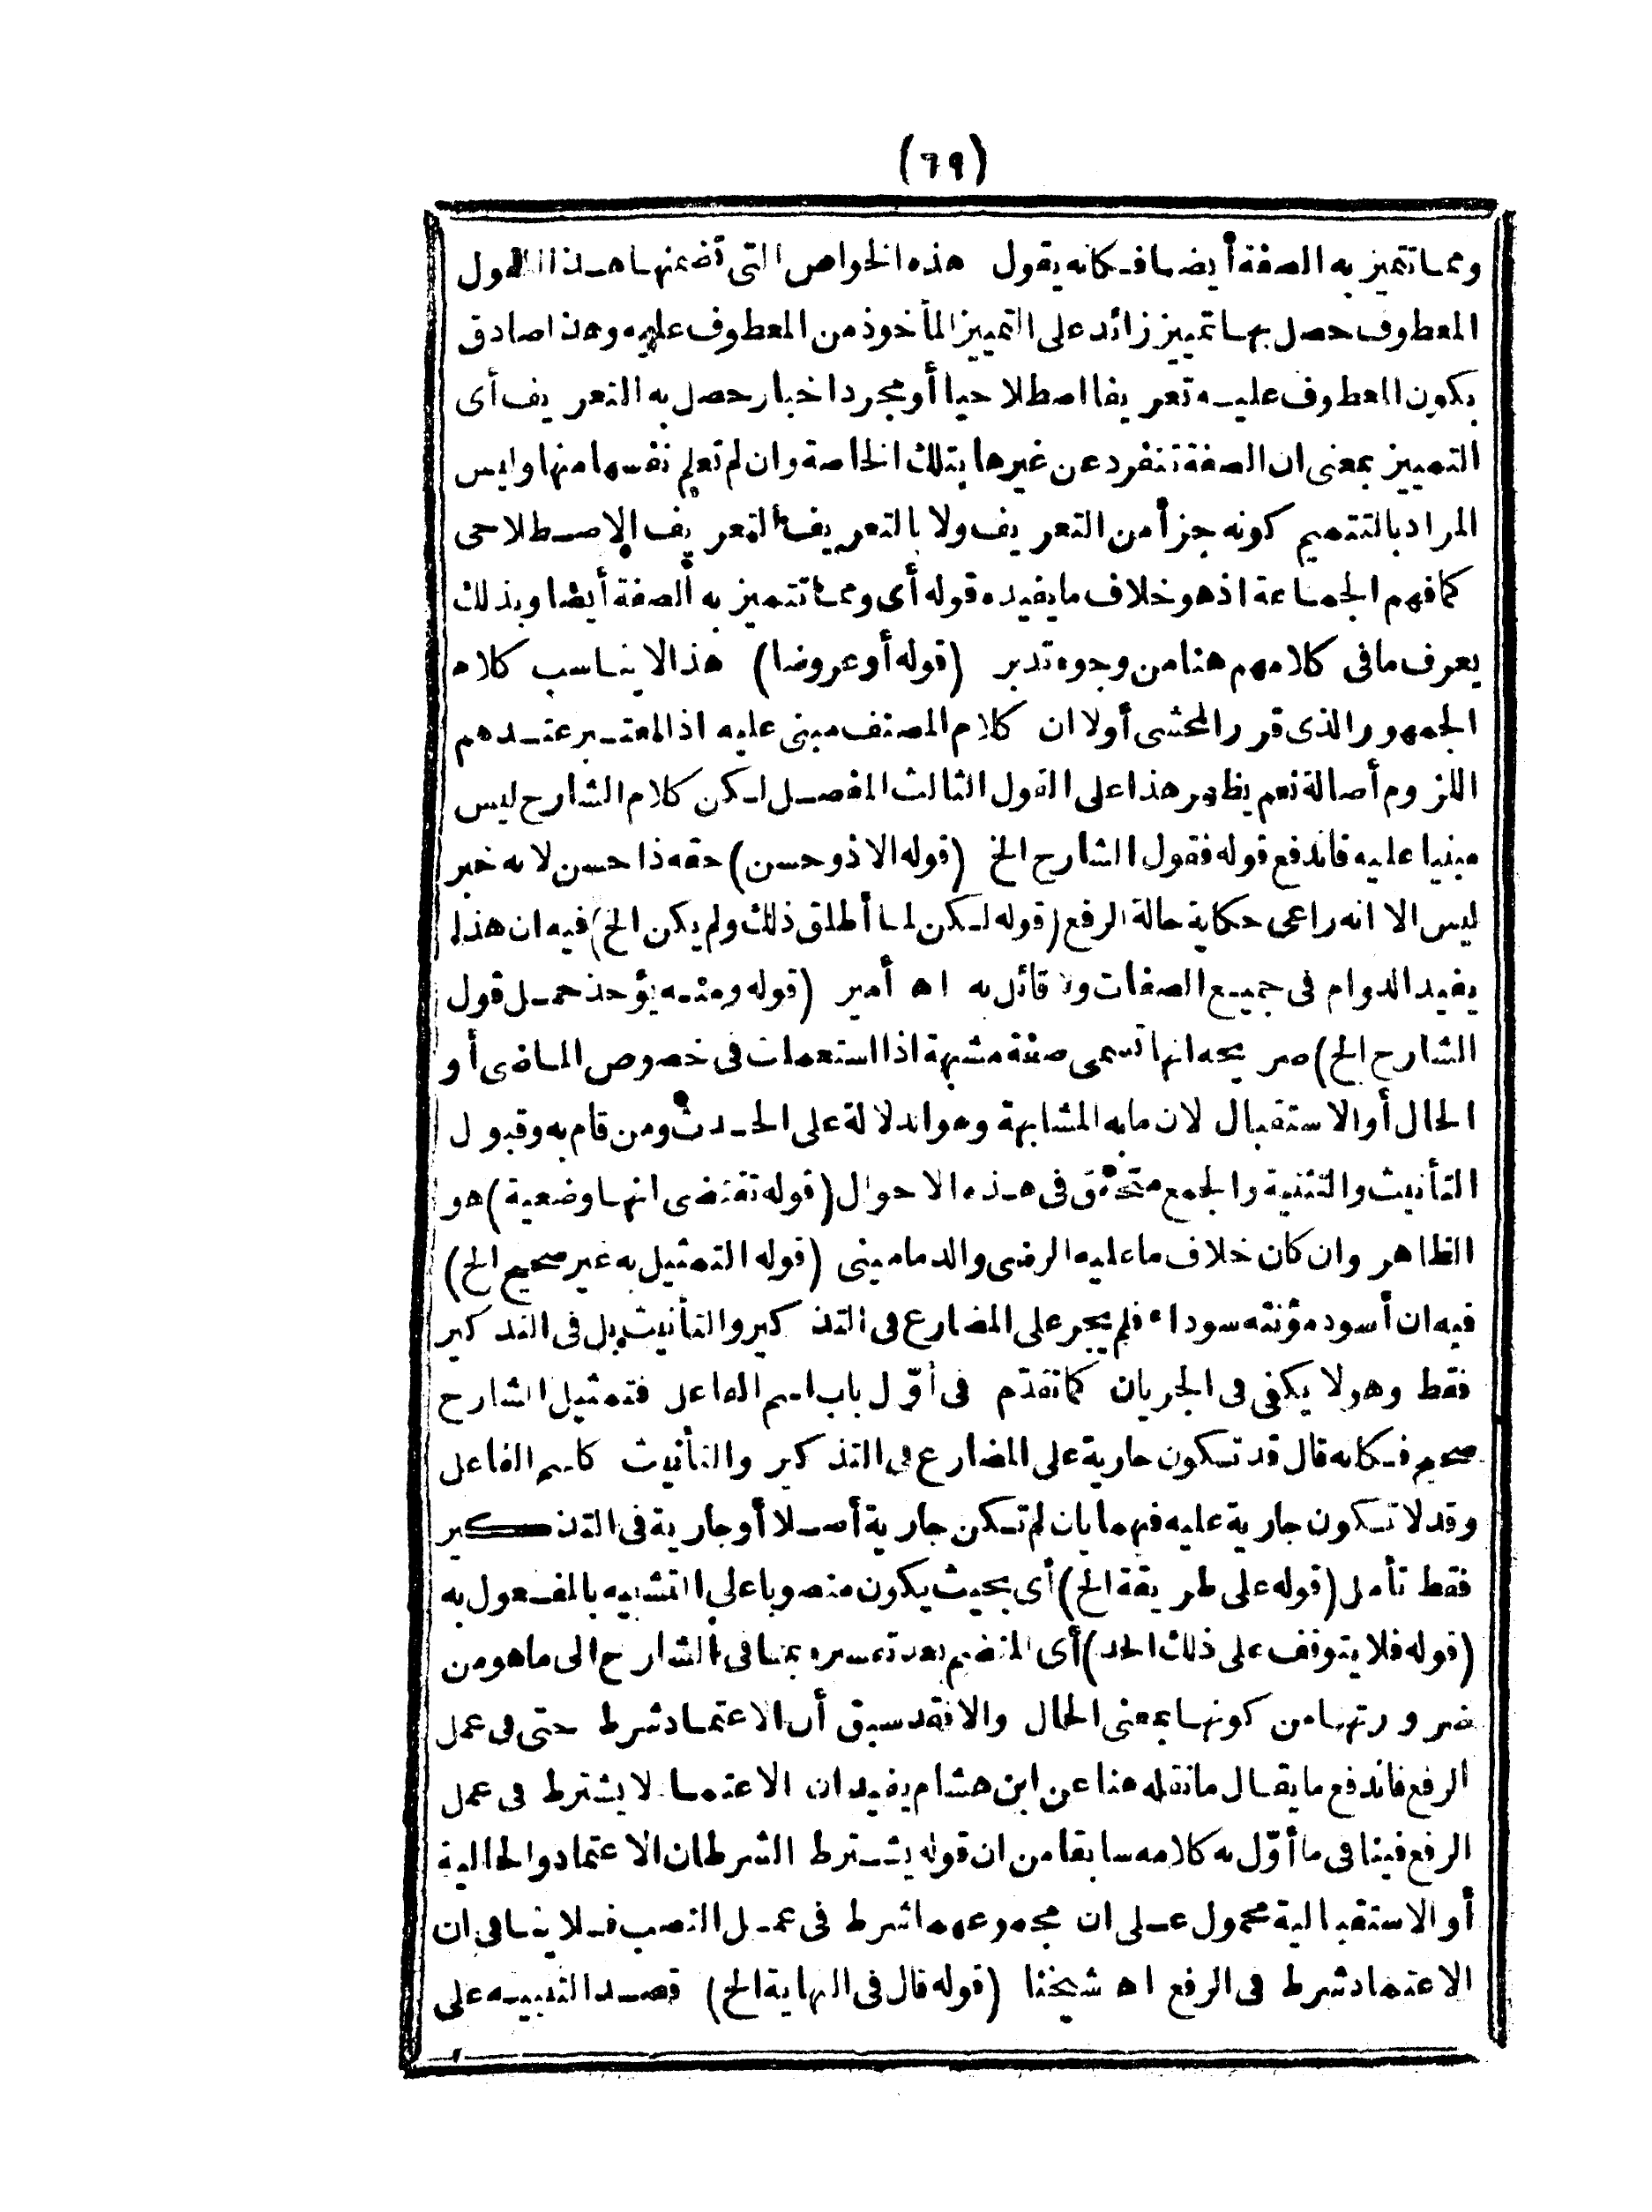 (٦٩)
ومما تتميز به الصفة أيضا فكانه يقول هذه الخواص التى تضمنها هذا القول
المعطوف حصل بها تمييز زائد على التمييز المأخوذ من المعطوف عليه وهذا صادق
بكون المعطوف عليه تعريفا اصطلاحيا أو مجرد اخبار حصل به التعريف أى
التمييز بمعنى ان الصفة تنفرد عن غيرها بتلك الخاصة وان لم تعلم نفسها منها وليس
المراد بالتتميم كونه جزأ من التعريف ولا بالتعريف التعريف الاصطلاحى
كما فهم الجماعة اذ هو خلاف ما يفيده قوله أى ومما تتميز به الصفة أيضا وبذلك
يعرف ما فى كلامهم هنا من وجوه تدبر (قوله أو عروضا) هذا لا يناسب كلام
الجمهور الذى قرر المحشى أولا ان كلام المصنف مبنى عليه اذ المعتبر عندهم
اللزوم أصالة نعم يظهر هذا على القول الثالث المفصل لكن كلام الشارح ليس
مبنيا عليه فاندفع قوله فقول الشارح الخ (قوله الا ذو حسن) حقه ذا حسن لانه خبر
ليس الا انه راعى حكاية حالة الرفع (قوله لكن لما أطلق ذلك ولم يكن الخ) فيه ان هذا
يفيد الدوام فى جميع الصفات ولا قائل به اه أمير (قوله ومنه يؤخذ حمل قول
الشارح الخ) صريحه انها تسمى صفة مشبهة اذا استعملت فى خصوص الماضى أو
الحال أو الاستقبال لان ما به المشابهة وهو الدلالة على الحدث ومن قام به وقبول
التأنيث والتثنية والجمع متحقق فى هذه الاحوال (قوله تقتضى انها وضعية) هو
الظاهر وان كان خلاف ما عليه الرضى والدمامينى (قوله التمثيل به غير صحيح الخ)
فيه ان أسود مؤنثه سوداء فلم يجر على المضارع فى التذكير والتأنيث بل فى التذكير
فقط وهو لا يكفى فى الجريان كما تقدّم فى أوّل باب اسم الفاعل فتمثيل الشارح
صحيح فكانه قال قد تكون جارية على المضارع فى التذكير والتأنيث كاسم الفاعل
وقد لا تكون جارية عليه فيهما بان لم تكن جارية أصلا أو جارية فى التذكير
فقط تأمل (قوله على طريقة الخ) أى بحيث يكون منصوبا على التشبيه بالمفعول به
(قوله فلا يتوقف على ذلك الحد) أى المنضم بعد تفسيره بما فى الشارح الى ما هو من
ضرورتها من كونها بمعنى الحال والا فقد سبق أن الاعتماد شرط حتى فى عمل
الرفع فاندفع ما يقال ما نقله هنا عن ابن هشام يفيد ان الاعتماد لا يشترط فى عمل
الرفع فينافى ما أوّل به كلامه سابقا من ان قوله يشترط الشرطان الاعتماد والحالية
أو الاستقبالية محمول على ان مجموعهما شرط فى عمل النصب فلا ينافى ان
الاعتماد شرط فى الرفع اه شيخنا (قوله قال فى النهاية الخ) قصد التنبيه على